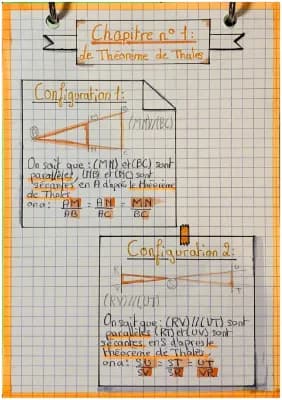 Chapitre n° 1:
de Théorème de Thales
Configuration 1:
(MN)//(BC)
On sait que : (MN) et (BC) sont
parallèles, (MB) et (NC) sont
sécantes en A d'après le théorème
de Thales
on a : AM/AB = AN/AC = MN/BC
Configuration 2:
(RV)//(UT)
On sait que : (RV)//(UT) sont
parallèles (RT) et (UV) sont
sécantes en S d'après le
théorème de Thales
on a : SU/SV = ST/SR = UT/VR